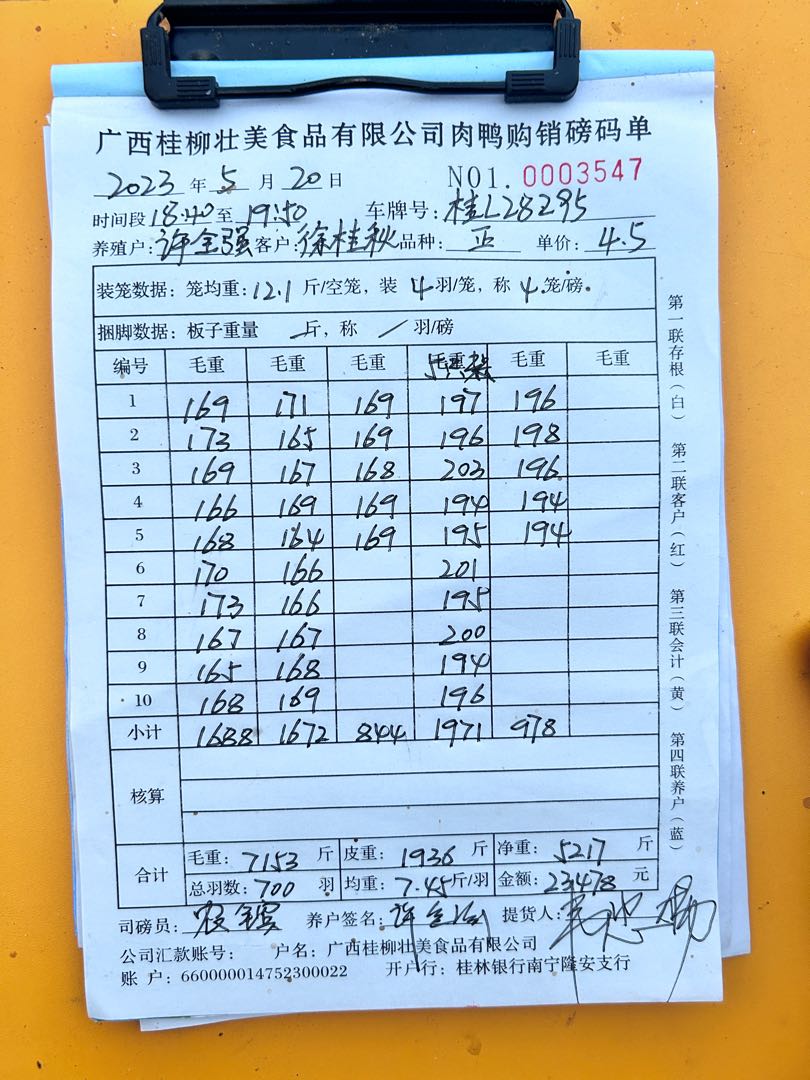 广西桂柳壮美食品有限公司肉鸭购销磅码单
2023 年 5 月 20 日 NO1. 0003547
时间段 18:40 至 19:50 车牌号: 桂L28295
养殖户: 许全强 客户: 徐桂秋 品种: 正 单价: 4.5
装笼数据: 笼均重: 12.1 斤/空笼, 装 4 羽/笼, 称 4 笼/磅.
捆脚数据: 板子重量 — 斤, 称 / 羽/磅
编号 毛重 毛重 毛重 毛重 毛重 毛重
1 169 171 169 197 196
2 173 165 169 196 198
3 169 167 168 203 196
4 166 169 169 194 194
5 168 164 169 195 194
6 170 166 201
7 173 166 195
8 167 167 200
9 165 168 194
10 168 169 196
小计 1688 1672 844 1971 978
核算
合计 毛重: 7153 斤 皮重: 1936 斤 净重: 5217 斤
总羽数: 700 羽 均重: 7.45 斤/羽 金额: 23478 元
司磅员: 养户签名: 许 提货人:
公司汇款账号: 户名: 广西桂柳壮美食品有限公司
账 户: 660000014752300022 开户行: 桂林银行南宁隆安支行
第一联存根(白) 第二联客户(红) 第三联会计(黄) 第四联养户(蓝)